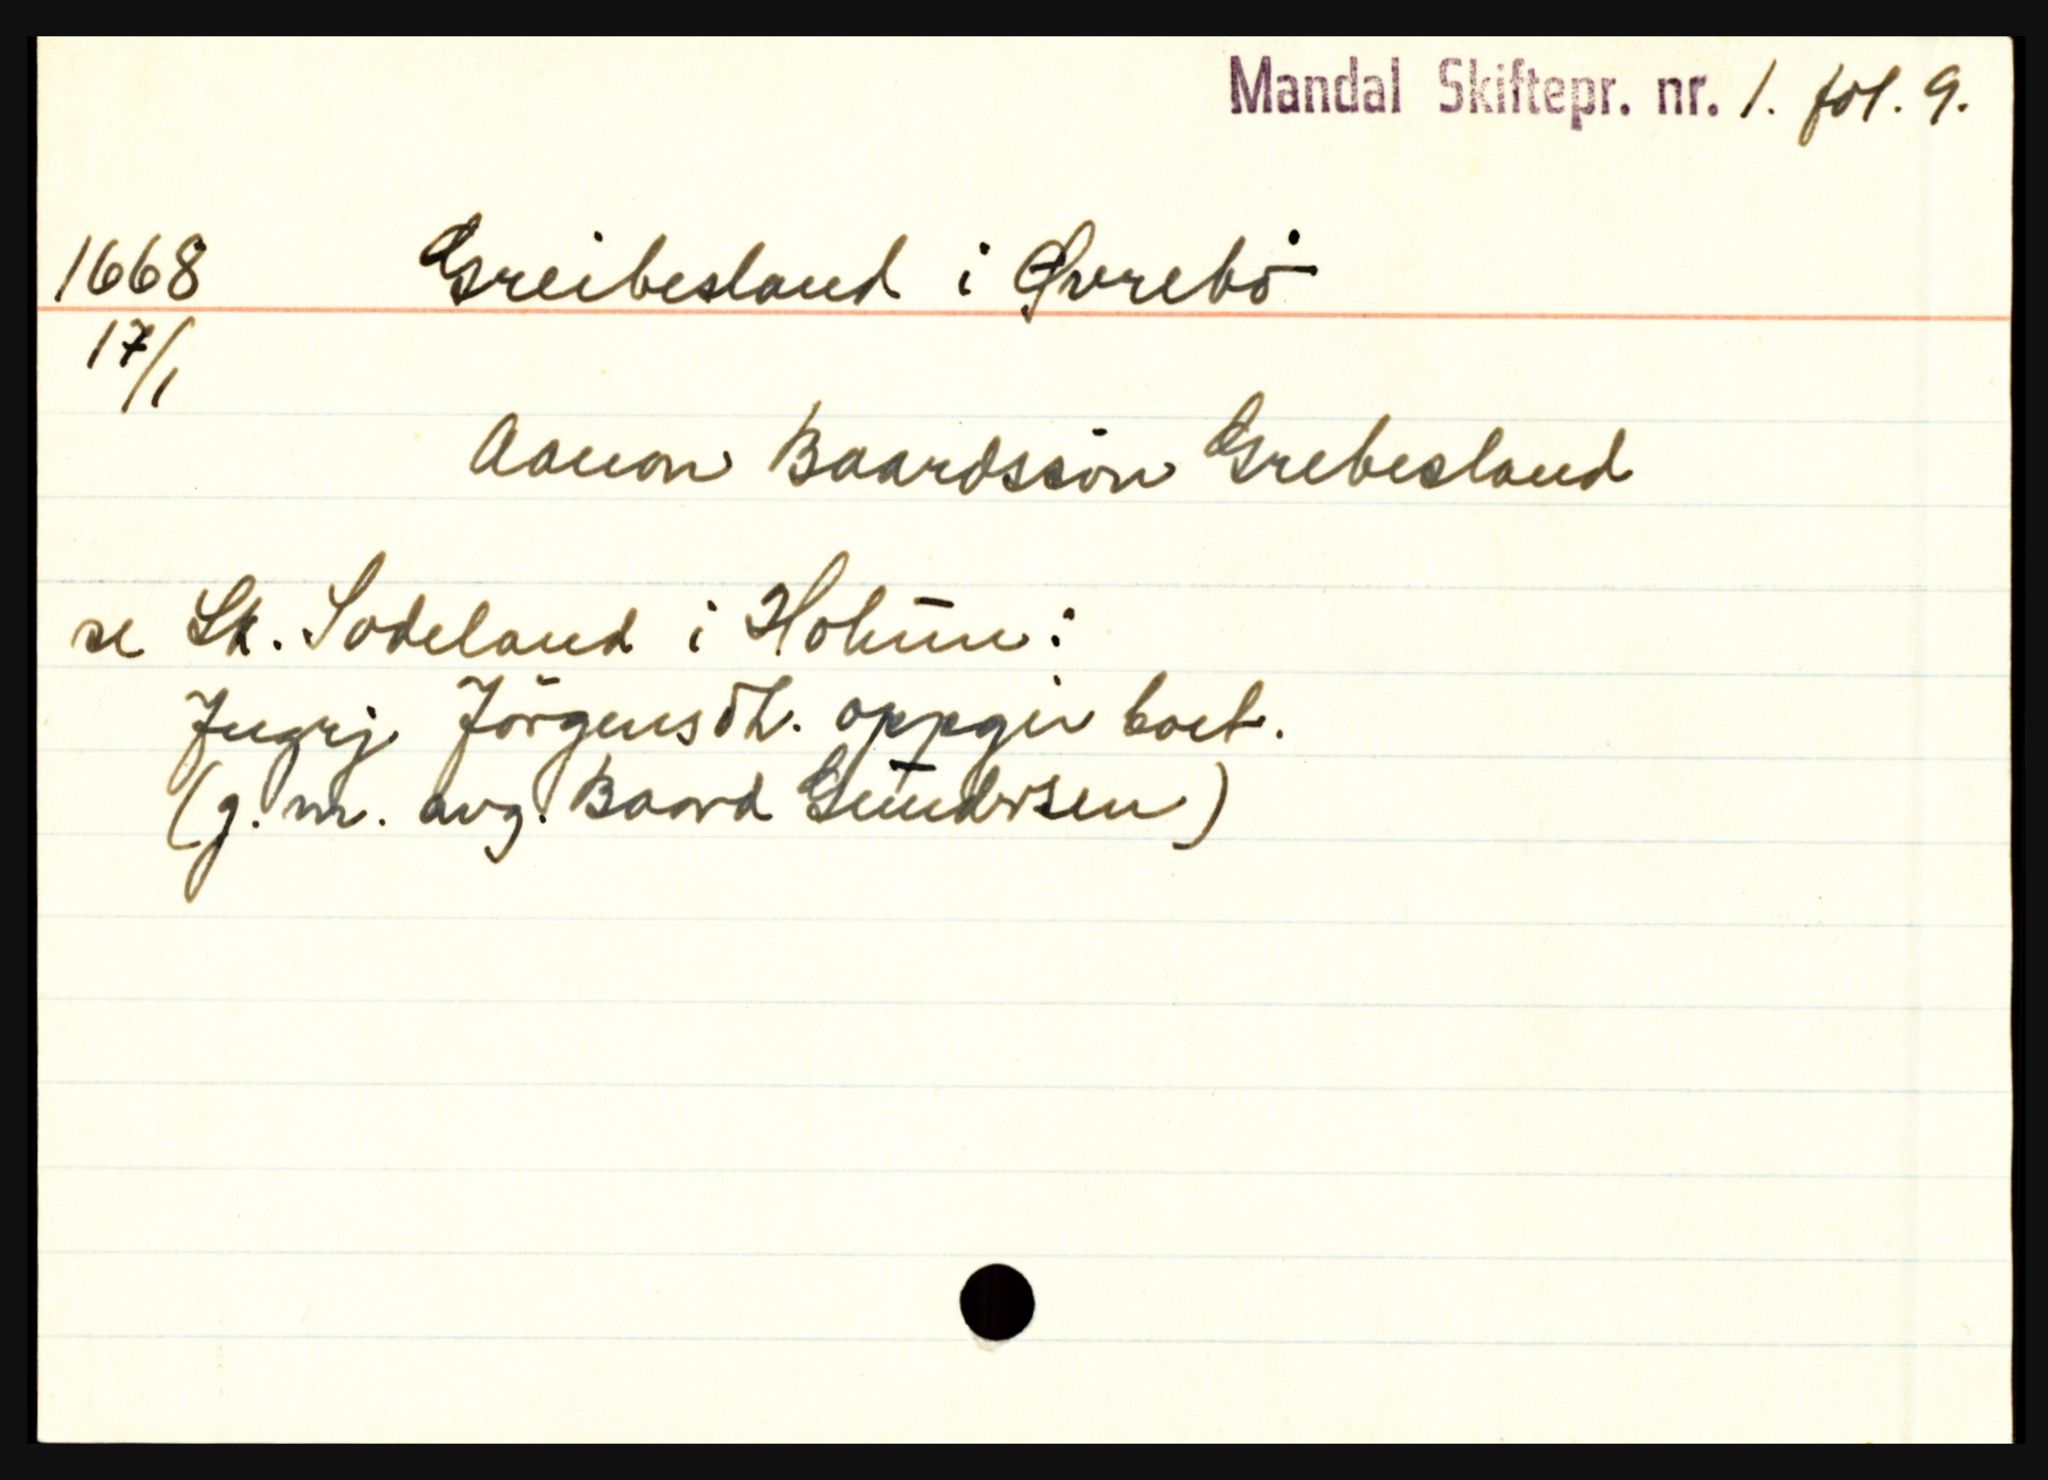 Mandal Skiftepr. nr. 1. fol. 9.
1668 Greibesland i Øvrebö
17/1
Aanon Baardssön Grebesland
se Sk. Sodeland i Holum:
Ingrj Jörgensdt. oppgir boet.
(g. m. avg. Baard Gundersen)